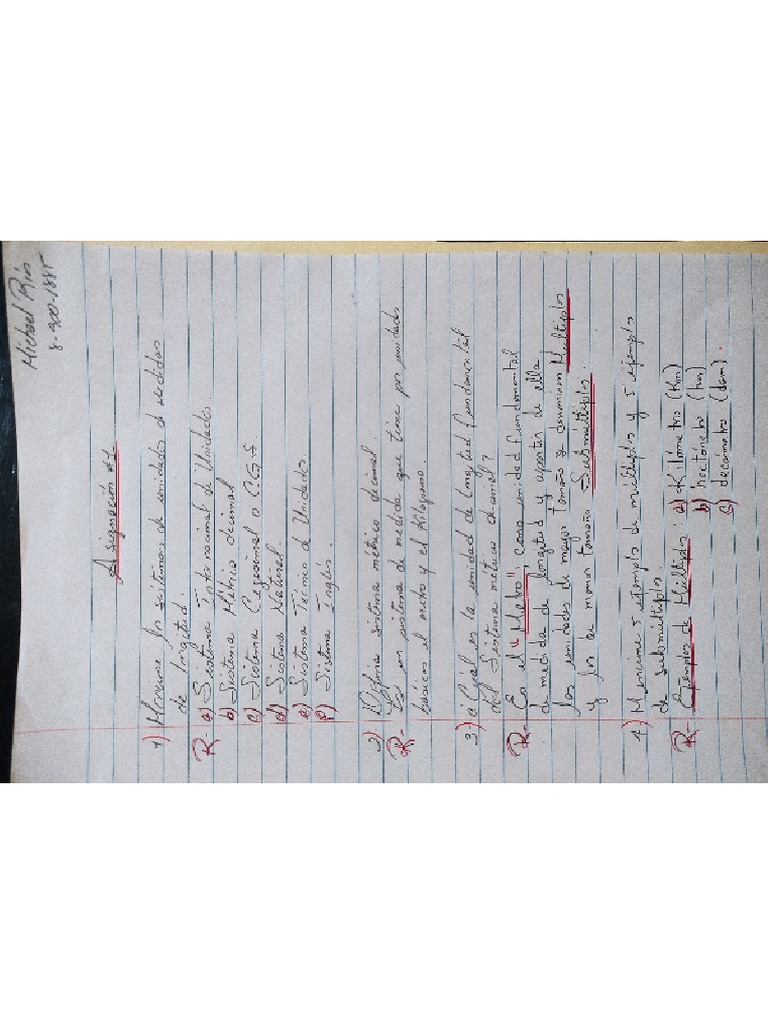 Michael Ríos
8-900-1885
Asignación #1
1) Mencione los sistemas de unidades de medidas
de longitud.
R- a) Sistema Internacional de Unidades
b) Sistema Métrico decimal
c) Sistema Cegesimal o C.G.S.
d) Sistema Natural.
e) Sistema Técnico de Unidades.
f) Sistema Inglés.
2) Defina sistema métrico decimal.
R- Es un sistema de medida que tiene por unidades
básicas el metro y el Kilogramo.
3) ¿Cuál es la unidad de longitud fundamental
del Sistema métrico decimal?
R- Es el "Metro", como unidad fundamental
de medida de longitud y apartir de ella,
las unidades de mayor tamaño se denominan Multiplos
y los de menor tamaño Submúltiplos.
4) Mencione 5 ejemplo de múltiplos y 5 ejemplo
de submúltiplo
R- Ejemplos de Múltiplos: a) Kilómetrio (Km)
b) hectómetro (hm)
c) decámetro (dam).